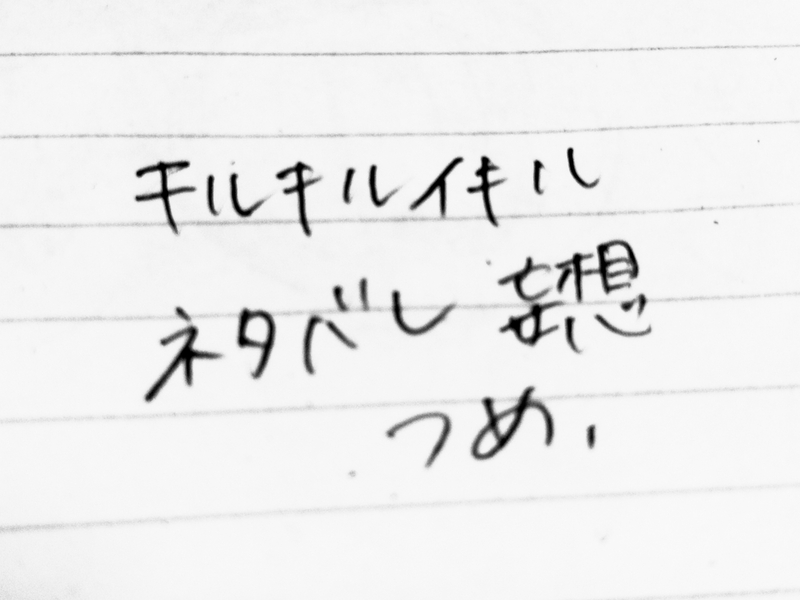 キルキルイキル
ネタバレ 妄想
つめ,